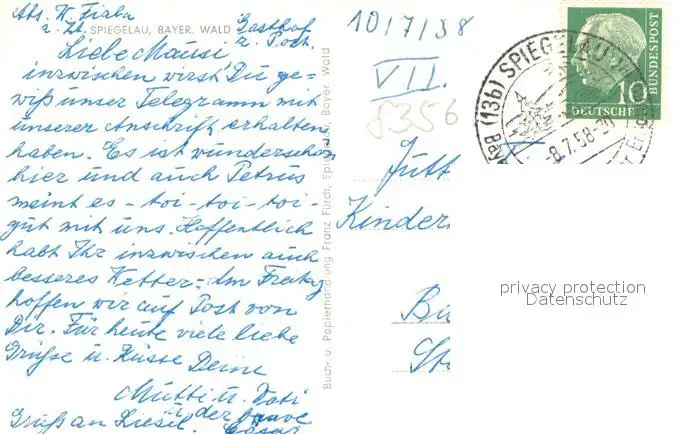 Abs. K. Fiala
z. Zt. SPIEGELAU, BAYER. WALD Gasthof
z. Post.
Liebe Mausi,
inzwischen wirst Du ge-
wiß unser Telegramm mit
unserer Anschrift erhalten
haben. Es ist wunderschön
hier und auch Petrus
meint es - toi - toi - toi -
gut mit uns. Hoffentlich
habt Ihr inzwischen auch
besseres Wetter. Am Freitag
hoffen wir auf Post von
Dir. Für heute viele liebe
Grüße u. Küsse Deine
Mutti u. Vati
u. der brave
Gruß an Liesel. Cäsar
Buch- u. Papierhandlung Franz Fürch, Spiegelau, Bayer. Wald
10/7/38
VII.
8356
Jutt
Kinder
Bu
St
(13b) SPIEGELAU
8.7.58-20
10
DEUTSCHE
BUNDESPOST
privacy protection
Datenschutz